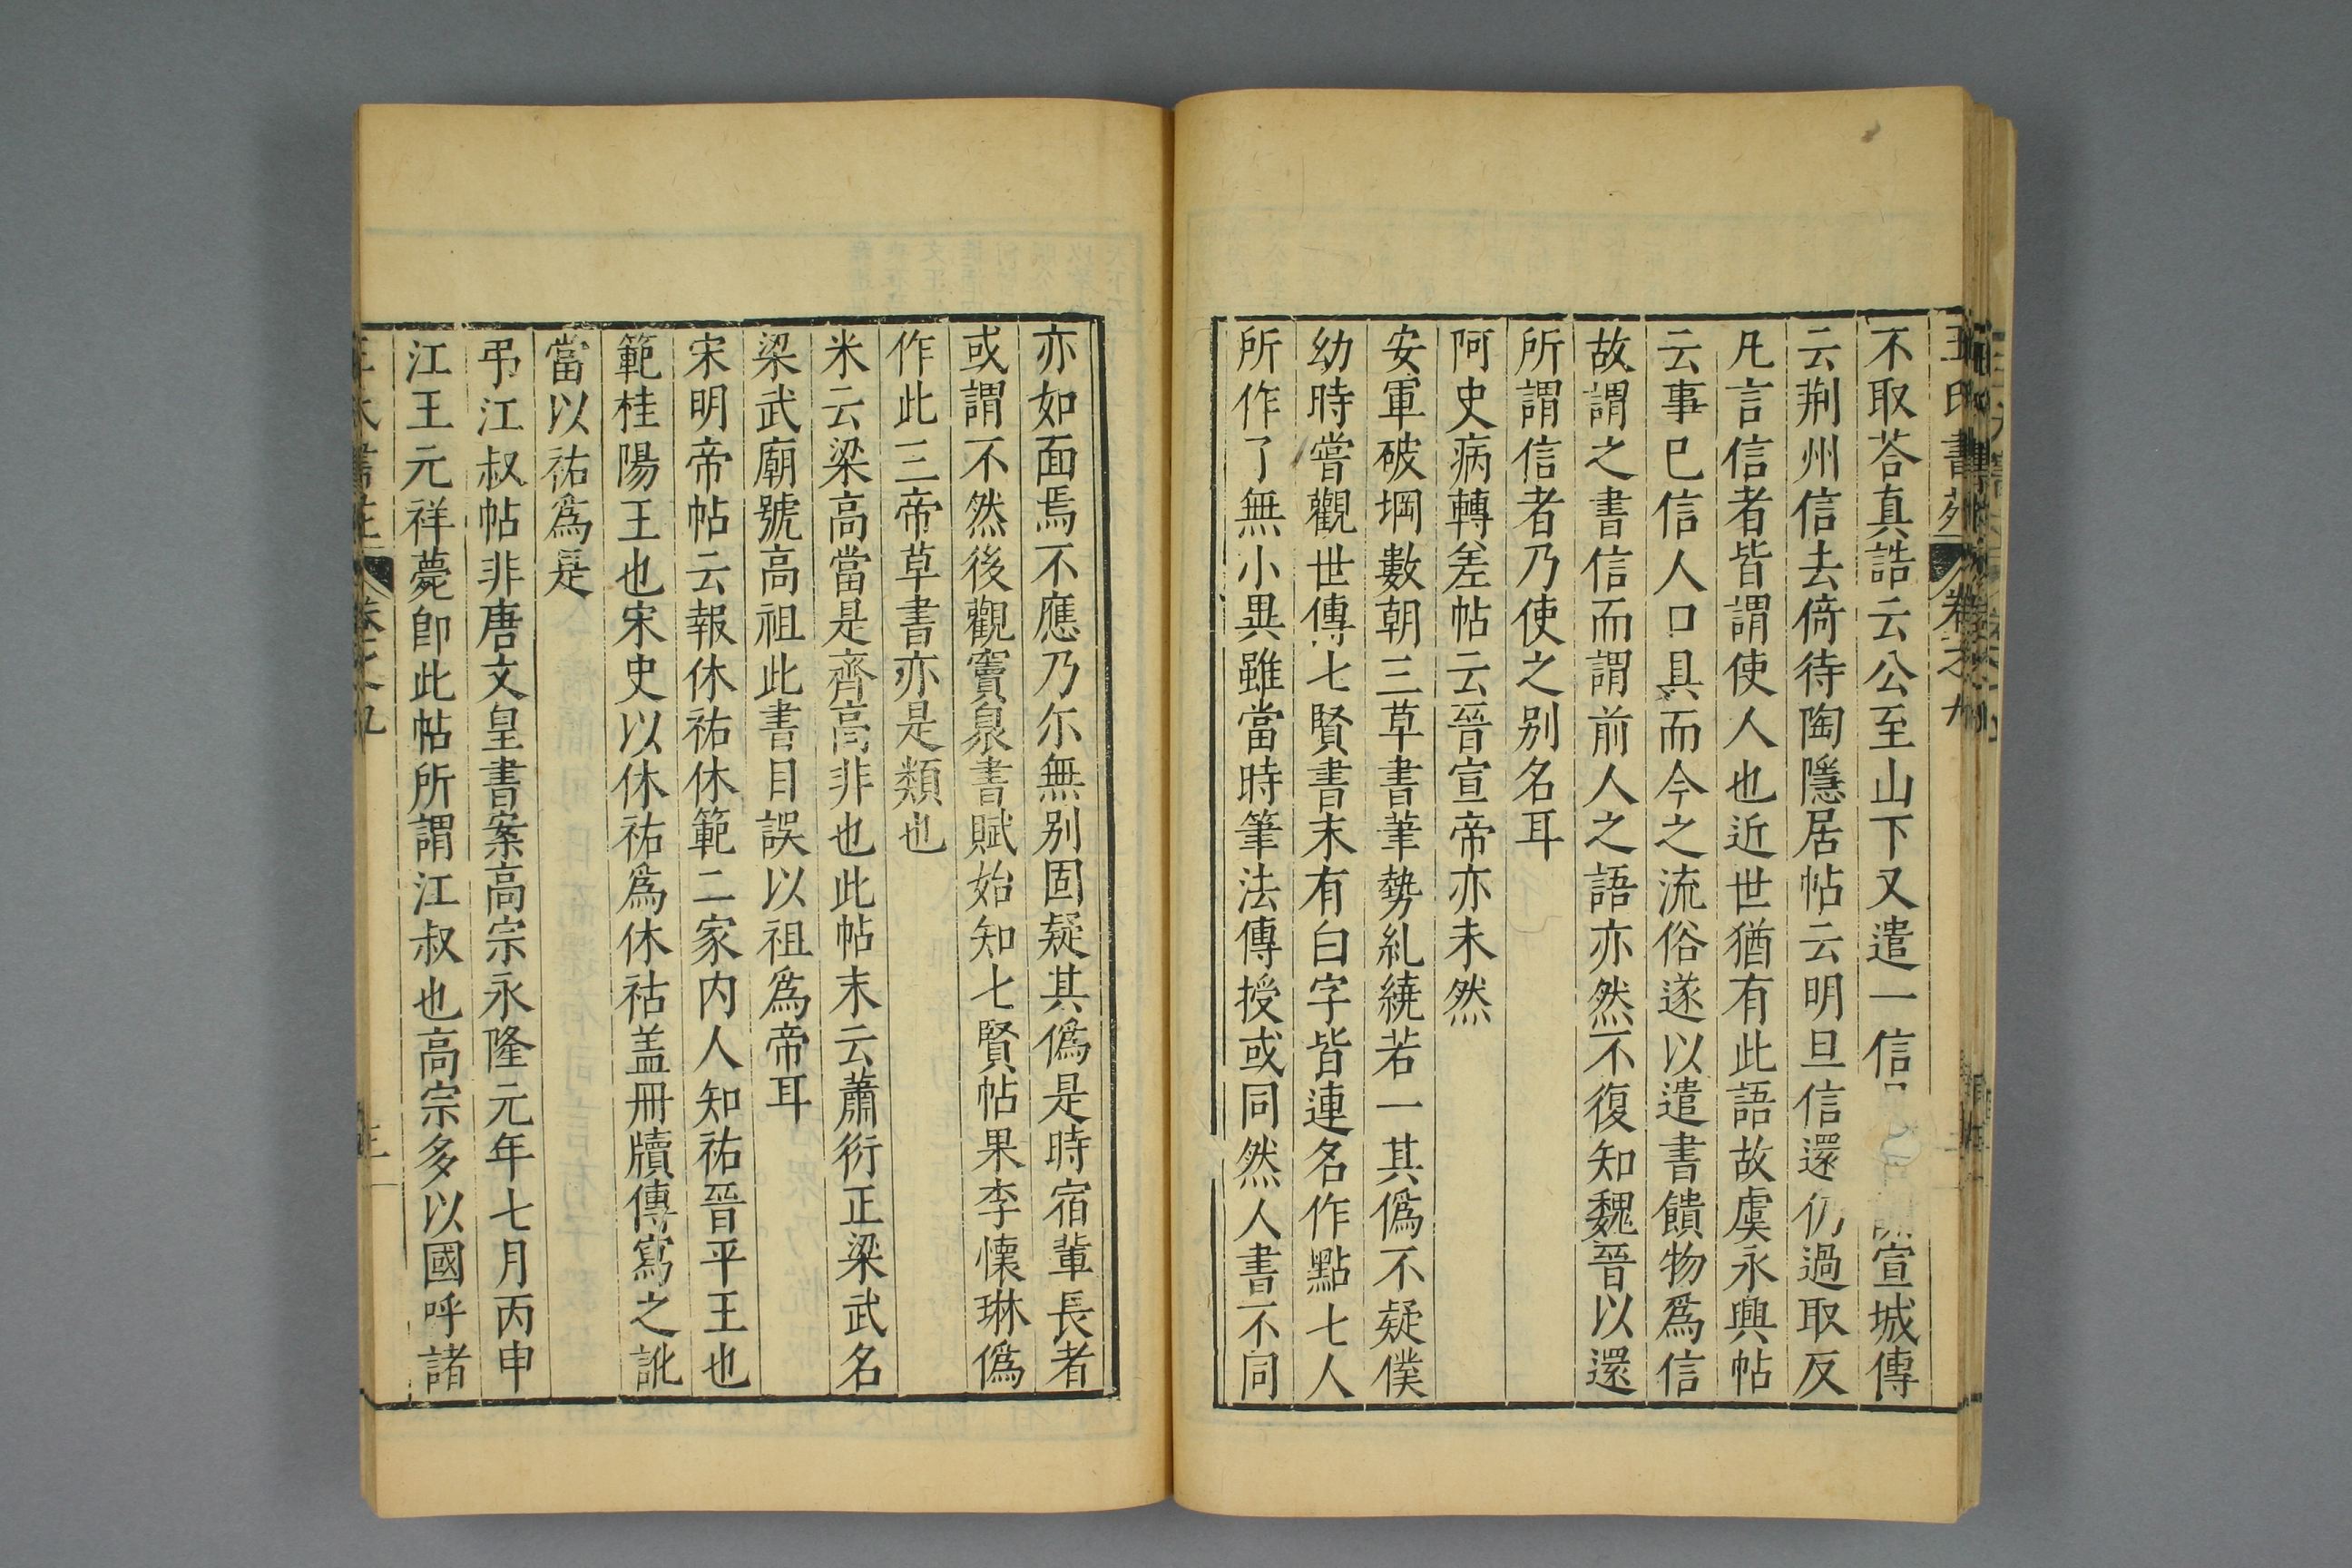 王氏書苑 卷之九
不取荅真誥云公至山下又遣一信 宣城傳
云荆州信去倚待陶隱居帖云明旦信還仍過取反
凡言信者皆謂使人也近世猶有此語故虞永興帖
云事已信人口具而今之流俗遂以遣書饋物爲信
故謂之書信而謂前人之語亦然不復知魏晉以還
所謂信者乃使之别名耳
阿史病轉差帖云晉宣帝亦未然
安軍破堈數朝三草書筆勢糺繞若一其僞不疑僕
幼時嘗觀世傳七賢書末有白字皆連名作點七人
所作了無小異雖當時筆法傳授或同然人書不同
亦如面焉不應乃尓無别固疑其僞是時宿軰長者
或謂不然後觀竇臮書賦始知七賢帖果李懷琳僞
作此三帝草書亦是類也
米云梁高當是齊高非也此帖末云蕭衍正梁武名
梁武廟號高祖此書目誤以祖爲帝耳
宋明帝帖云報休祐休範二家内人知祐晉平王也
範桂陽王也宋史以休祐爲休祜盖冊牘傳寫之訛
當以祐爲是
弔江叔帖非唐文皇書案高宗永隆元年七月丙申
江王元祥薨卽此帖所謂江叔也高宗多以國呼諸